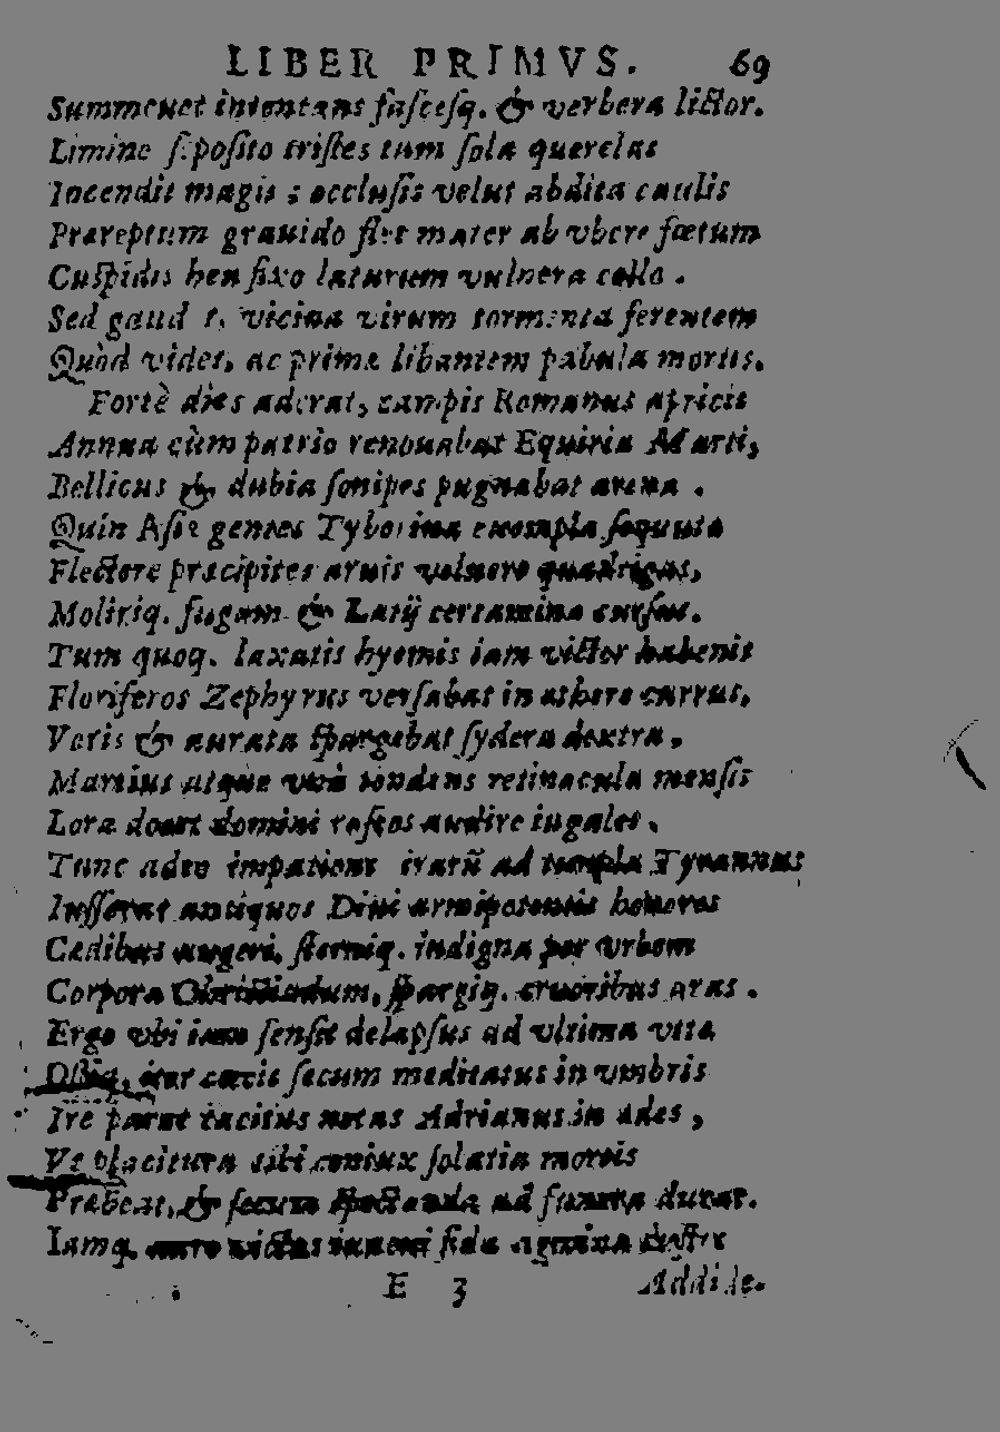 LIBER PRIMVS. 69
Summouet intentans fascesq. & verbera lictor.
Limine seposito tristes tum sola querelas
Incendit magis; occlusis velut abdita caulis
Præreptum grauido flet mater ab vbere fœtum
Cuspidis heu fixo laturum vulnera collo.
Sed gaud vicina virum tormenta ferentem
Quòd videt, ac primæ libantem pabula mortis.
Fortè dies aderat, campis Romanus apricis
Annua cùm patrio renouabat Equiria Marti,
Bellicus & dubia sonipes pugnabat arena.
Quin Asiæ gentes Tyberina exempla sequuta
Flectere præcipites aruis quadrigas,
Moliriq. fugam & Latij certamina cursus.
Tum quoq. laxatis hyemis iam victor habenis
Floriferos Zephyrus versabat in æthere currus,
Veris & aurata spargebat sydera dextra,
Martius atque tondens retinacula mensis
Lora docet domini roseos audire iugales.
Tunc adeo impatiens iratũ ad templa Tyrannus
Inferrat antiquos Diui armipotentis honores
Cædibus augeri, sterniq. indigna per vrbem
Corpora Christiadum, spargiq. cruoribus aras.
Ergo vbi iam sensit delapsus ad vltima vitæ
iter cæcis secum meditatus in vmbris
Ire parat tacitus notas Adrianus in ædes,
Vt placitura sibi coniux solatia mortis
Præbeat, & secum spectanda ad funera ducat.
Iamq. iuueni fida agmina dextræ
E 3 Addide.